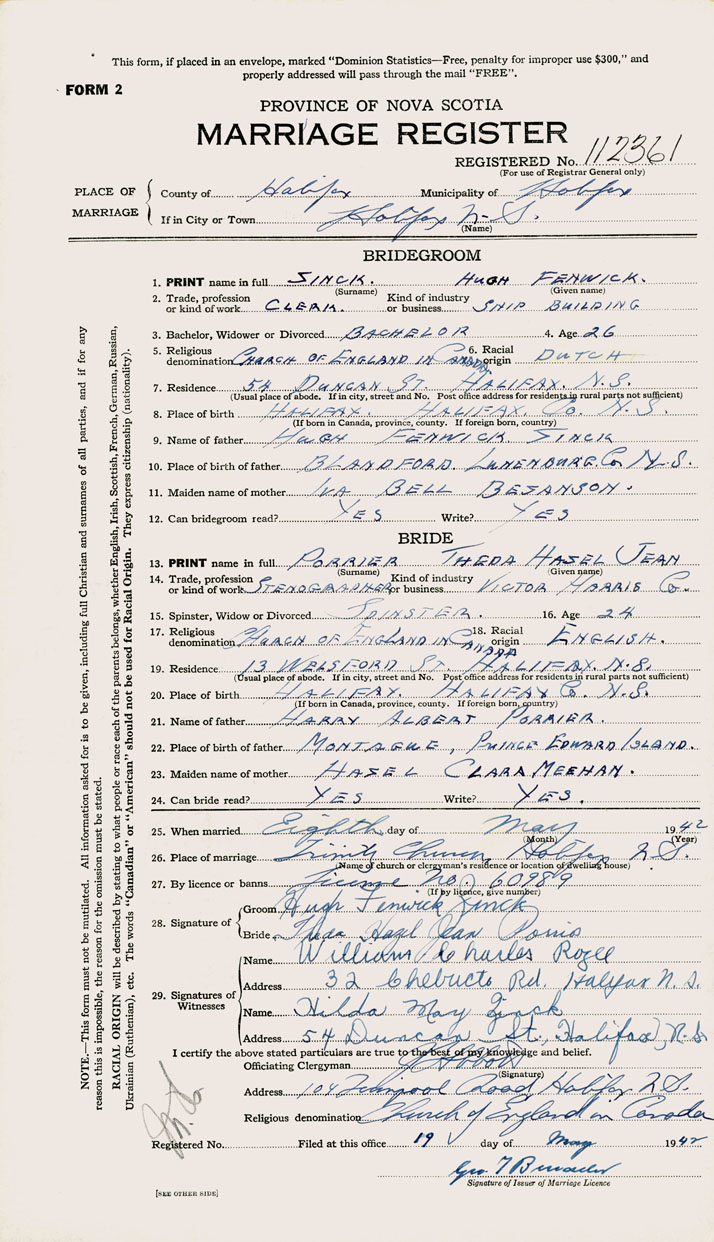 This form, if placed in an envelope, marked "Dominion Statistics—Free, penalty for improper use $300," and
properly addressed will pass through the mail "FREE".
FORM 2
PROVINCE OF NOVA SCOTIA
MARRIAGE REGISTER
REGISTERED No. 112361
(For use of Registrar General only)
PLACE OF MARRIAGE
County of Halifax Municipality of Halifax
If in City or Town Halifax N.S.
(Name)
BRIDEGROOM
1. PRINT name in full SINCK. HUGH FENWICK.
(Surname) (Given name)
2. Trade, profession or kind of work CLERK. Kind of industry or business SHIP BUILDING
3. Bachelor, Widower or Divorced BACHELOR 4. Age 26
5. Religious denomination CHURCH OF ENGLAND IN CANADA 6. Racial origin DUTCH
7. Residence 54 DUNCAN ST. HALIFAX. N.S.
(Usual place of abode. If in city, street and No. Post office address for residents in rural parts not sufficient)
8. Place of birth HALIFAX. HALIFAX. CO. N.S.
(If born in Canada, province, county. If foreign born, country)
9. Name of father HUGH FENWICK SINCK
10. Place of birth of father BLANDFORD. LUNENBURG. CO N.S.
11. Maiden name of mother IVA BELL BEZANSON.
12. Can bridegroom read? YES Write? YES
BRIDE
13. PRINT name in full PORRIER THEDA HAZEL JEAN
(Surname) (Given name)
14. Trade, profession or kind of work STENOGRAPHER Kind of industry or business VICTOR HARRIS CO.
15. Spinster, Widow or Divorced SPINSTER. 16. Age 24
17. Religious denomination CHURCH OF ENGLAND IN CANADA 18. Racial origin ENGLISH.
19. Residence 13 WELSFORD ST. HALIFAX. N.S.
(Usual place of abode. If in city, street and No. Post office address for residents in rural parts not sufficient)
20. Place of birth HALIFAX. HALIFAX CO. N.S.
(If born in Canada, province, county. If foreign born, country)
21. Name of father HARRY ALBERT PORRIER.
22. Place of birth of father MONTAGUE, PRINCE EDWARD ISLAND.
23. Maiden name of mother HAZEL CLARA MEEHAN.
24. Can bride read? YES Write? YES.
25. When married Eighth day of May 1942
(Month) (Year)
26. Place of marriage Trinity Church, Halifax N.S.
(Name of church or clergyman's residence or location of dwelling house)
27. By licence or banns license No 60989
(If by licence, give number)
28. Signature of
Groom Hugh Fenwick Zinck
Bride Theda Hazel Jean
29. Signatures of Witnesses
Name William Charles
Address 32 Chebucto Rd. Halifax N.S.
Name Hilda May Zinck
Address 54 Duncan St., Halifax, N.S.
I certify the above stated particulars are true to the best of my knowledge and belief.
Officiating Clergyman
(Signature)
Address 104 Road Halifax N.S.
Religious denomination Church of England in Canada
Registered No. Filed at this office 19 day of May 1942
Geo. T
Signature of Issuer of Marriage Licence
[SEE OTHER SIDE]
NOTE.—This form must not be mutilated. All information asked for is to be given, including full Christian and surnames of all parties, and if for any
reason this is impossible, the reason for the omission must be stated.
RACIAL ORIGIN will be described by stating to what people or race each of the parents belongs, whether English, Irish, Scottish, French, German, Russian,
Ukrainian (Ruthenian), etc. The words "Canadian" or "American" should not be used for Racial Origin. They express citizenship (nationality).